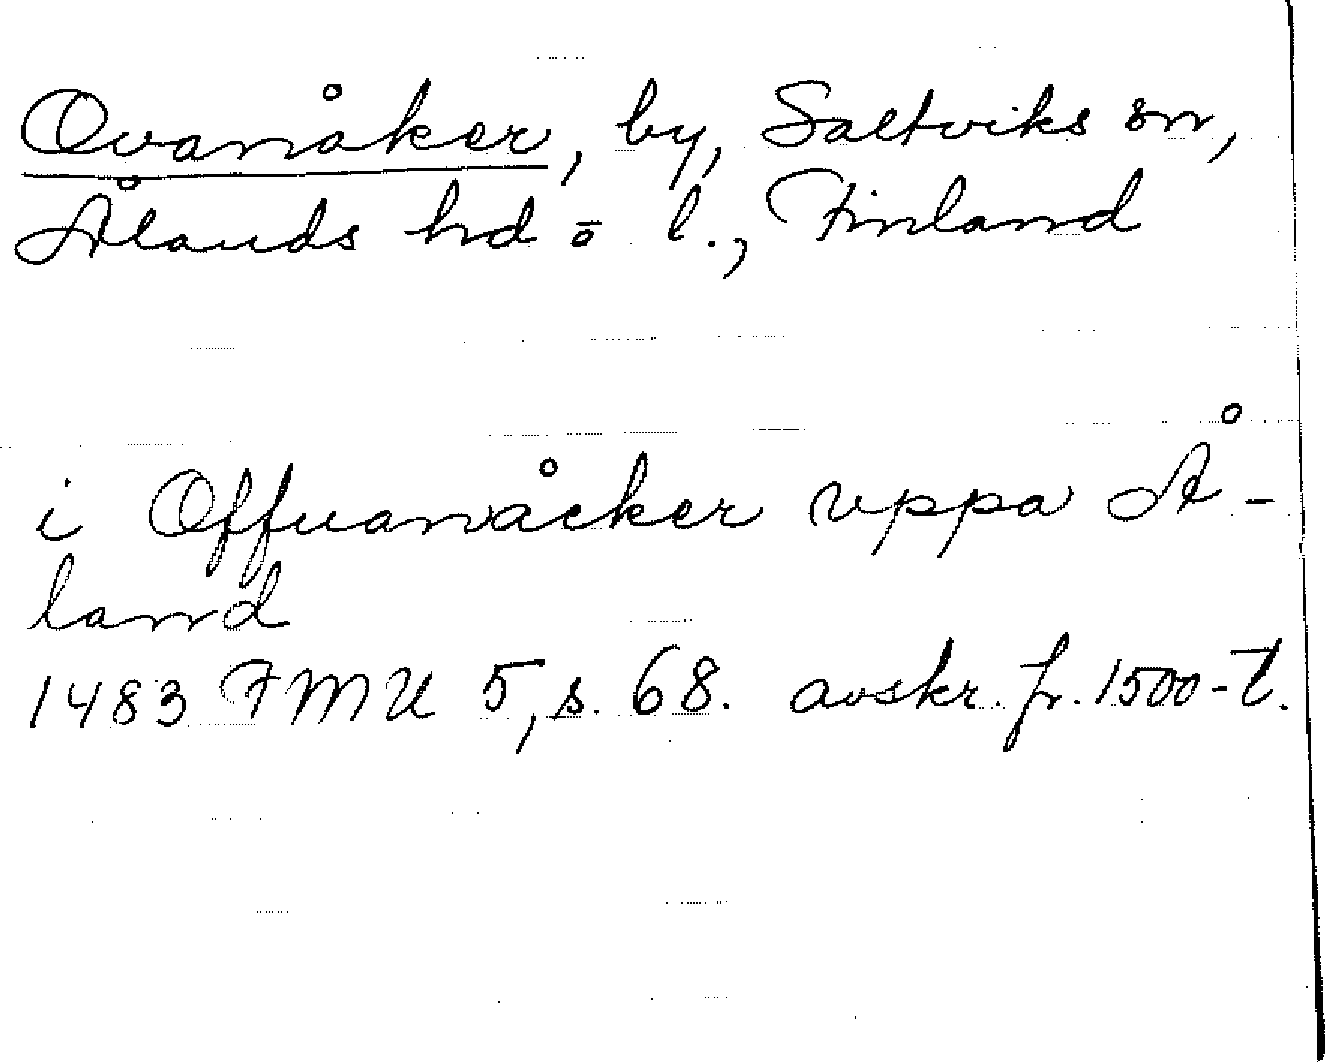 Ovanåker, by, Saltviks sn,
Ålands hd o l., Finland
i Offuanåcker vppa Å-
land
1483 FMU 5, s. 68. avskr. fr. 1500-t.